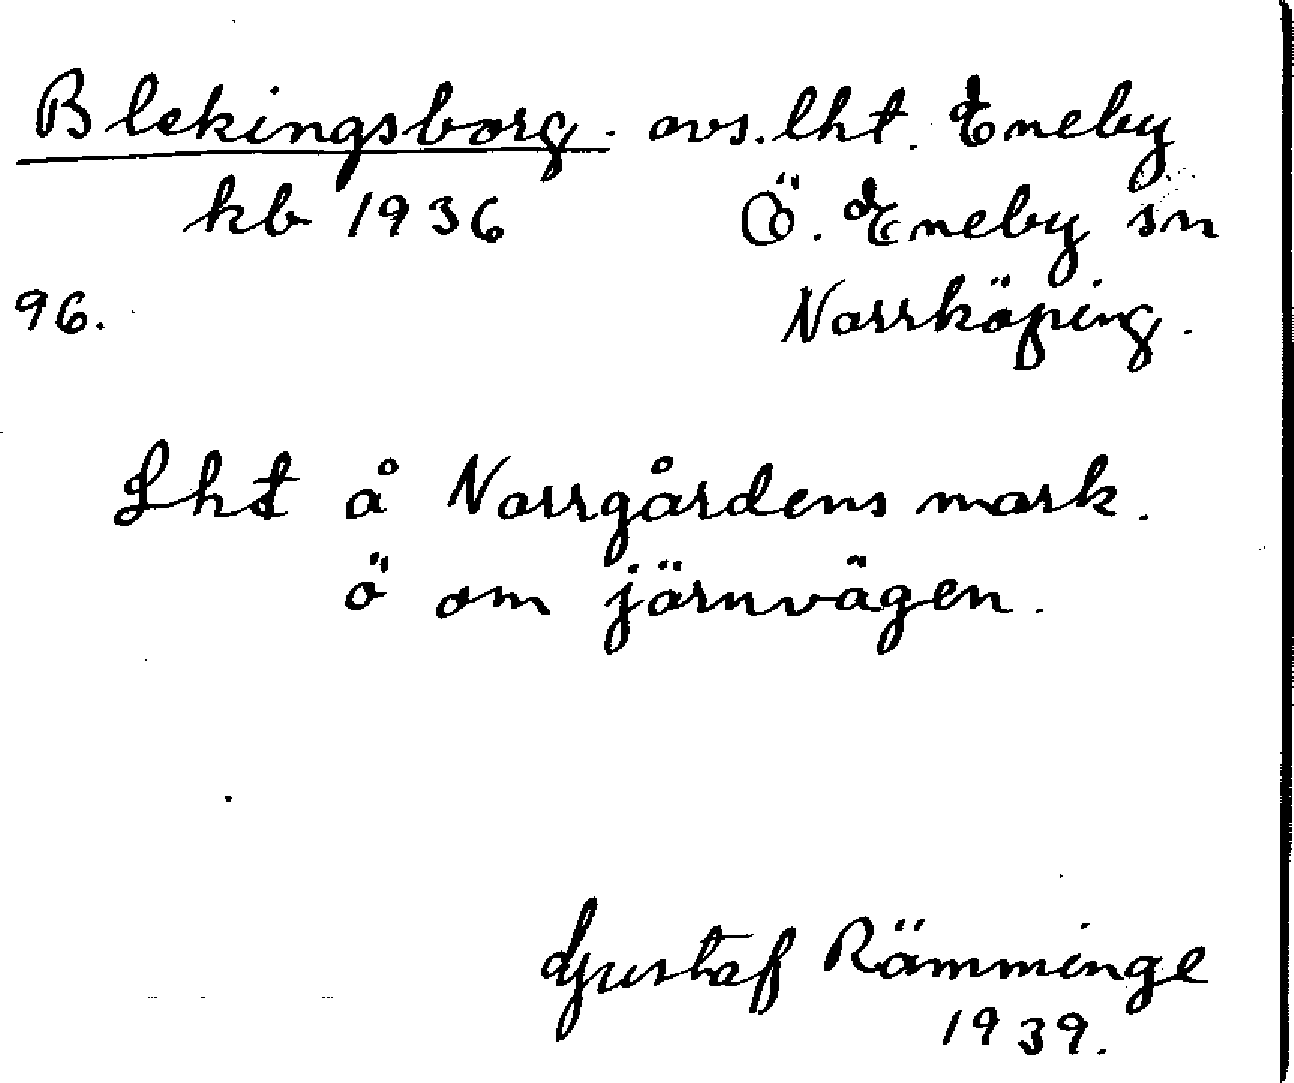 Blekingsborg. avs. lht. Eneby
kb 1936 Ö. Eneby sn
96. Norrköping.
Lht å Norrgårdens mark.
ö om järnvägen.
Gustaf Rämminge
1939.